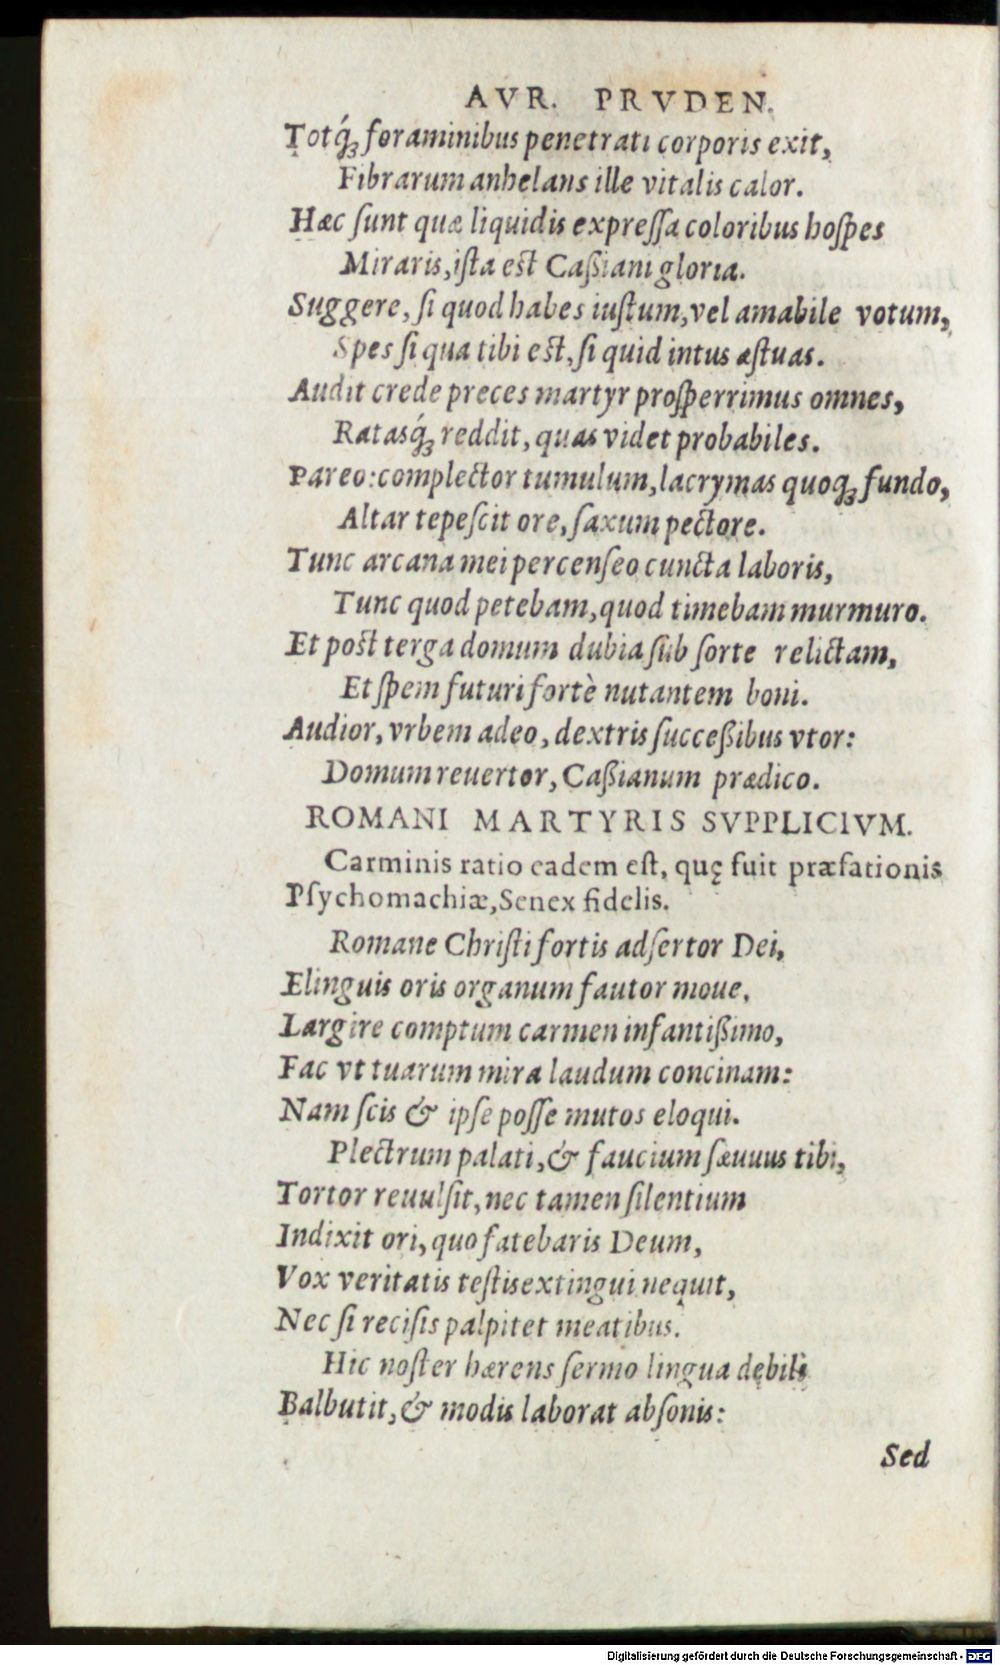 AVR. PRVDEN.
Totq́ꝫ foraminibus penetrati corporis exit,
Fibrarum anhelans ille vitalis calor.
Hæc ſunt quæ liquidis expreſſa coloribus hoſpes
Miraris, iſta eſt Caßiani gloria.
Suggere, ſi quod habes iuſtum, vel amabile votum,
Spes ſi qua tibi eſt, ſi quid intus æſtuas.
Audit crede preces martyr proſperrimus omnes,
Ratasq́ꝫ reddit, quas videt probabiles.
Pareo: complector tumulum, lacrymas quoqꝫ fundo,
Altar tepeſcit ore, ſaxum pectore.
Tunc arcana mei percenſeo cuncta laboris,
Tunc quod petebam, quod timebam murmuro.
Et poſt terga domum dubia ſub ſorte relictam,
Et ſpem futuri fortè nutantem boni.
Audior, vrbem adeo, dextris ſucceßibus vtor:
Domum reuertor, Caßianum prædico.
ROMANI MARTYRIS SVPPLICIVM.
Carminis ratio eadem eſt, quę fuit præfationis
Pſychomachiæ, Senex fidelis.
Romane Chriſti fortis adſertor Dei,
Elinguis oris organum fautor moue,
Largire comptum carmen infantißimo,
Fac vt tuarum mira laudum concinam:
Nam ſcis & ipſe poſſe mutos eloqui.
Plectrum palati, & faucium ſæuuus tibi,
Tortor reuulſit, nec tamen ſilentium
Indixit ori, quo fatebaris Deum,
Vox veritatis teſtis extingui nequit,
Nec ſi reciſis palpitet meatibus.
Hic noſter hærens ſermo lingua debili
Balbutit, & modis laborat abſonis:
Sed
Digitalisierung gefördert durch die Deutsche Forschungsgemeinschaft - DFG